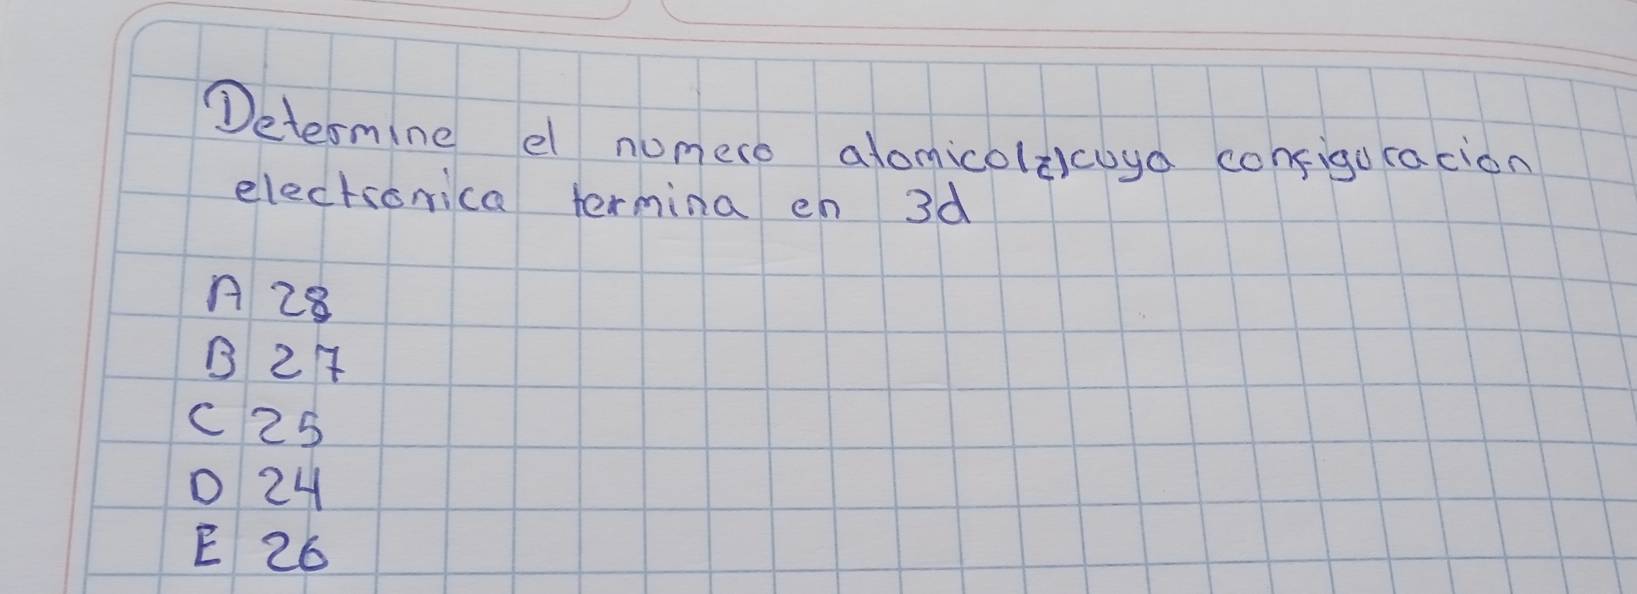 Determine el numero atomico(z)cuya configuracion
electronica termina en 3d
A 28
B 27
C 25
D 24
E 26